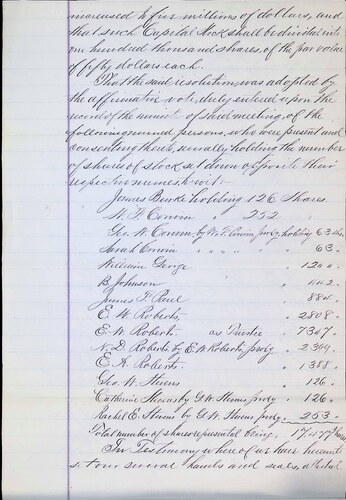 increased to five millions of dollars, and
that such Capital Stock shall be divided into
one hundred thousand shares, of the par value
of fifty dollars each.
That the said resolution, was adopted by
the affirmative vote, duly entered upon the
record of the minutes of said meeting, of the
following named persons, who were present and
consenting thereto, severally holding the number
of shares of stock set down opposite their
respective names to wit:—
James Burke holding 126 Shares
W. F. Corwin " 252
Geo. W. Corwin by W. F. Corwin proxy, holding 63 shs.
Sarah Corwin " " " " 63 "
William George " 1200
B. Johnson " 442
James F. Reul " 884
E. W. Roberts " 2808
E. W. Roberts as Trustee " 7347
N. D. Roberts by E. W. Roberts, proxy " 2349
E. A. Roberts " 1388
Geo. W. Stevens " 126
Catherine Stevens by G. W. Stevens proxy " 126
Rachel E. Stevens by G. W. Stevens proxy " 253
Total number of shares represented being, 17,477 shares
In Testimony whereof we have hereunto
set our several hands and seals, and